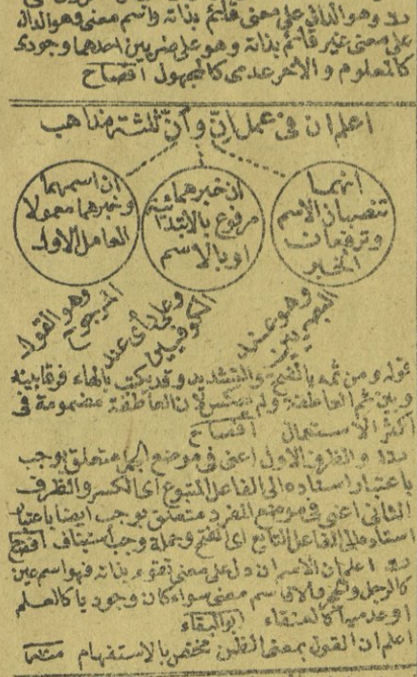 وهو الدال على معنى قائم بذاته واسم معنى وهو الدال
على معنى غير قائم بذاته وهو على ضربين احدهما وجودى
كالعلوم والآخر عدمى كالمجهول افصاح
اعلم ان فى عمل انّ وأنّ ثلثة مذاهب
انهما
تنصبان الاسم
وترفعان
الخبر
وهو عند
البصريين
ان خبرهما
مرفوع بالابتدا
او بالاسم
وعلى رأى عند
الكوفيين
ان اسمهما
وخبرهما معمولا
العامل الاول
وهو القول
المرجوح
قوله ومن ثمه بالفتح والتشديد وقد يكتب بالهاء فرقا بينه
وبين ثم العاطفة ولم يعكس لان العاطفة مضمومة فى
اكثر الاستعمال افصاح
والظرف الاول اعنى فى موضع الجملة متعلق بوجب
باعتبار اسناده الى الفاعل المتبوع اى الكسر والظرف
الثانى اعنى فى موضع المفرد متعلق بوجب ايضا باعتبار
اسناده الى الفاعل التابع اى الفتح وجملة وجب استيناف افصح
اعلم ان الاسم ان دل على معنى يقوم بذاته فهو اسم عين
كالرجل والا فاسم معنى سواء كان وجوديا كالعلم
او عدميا كالعنقاء ابو البقاء
اعلم ان القول بمعنى الظن مختص بالاستفهام